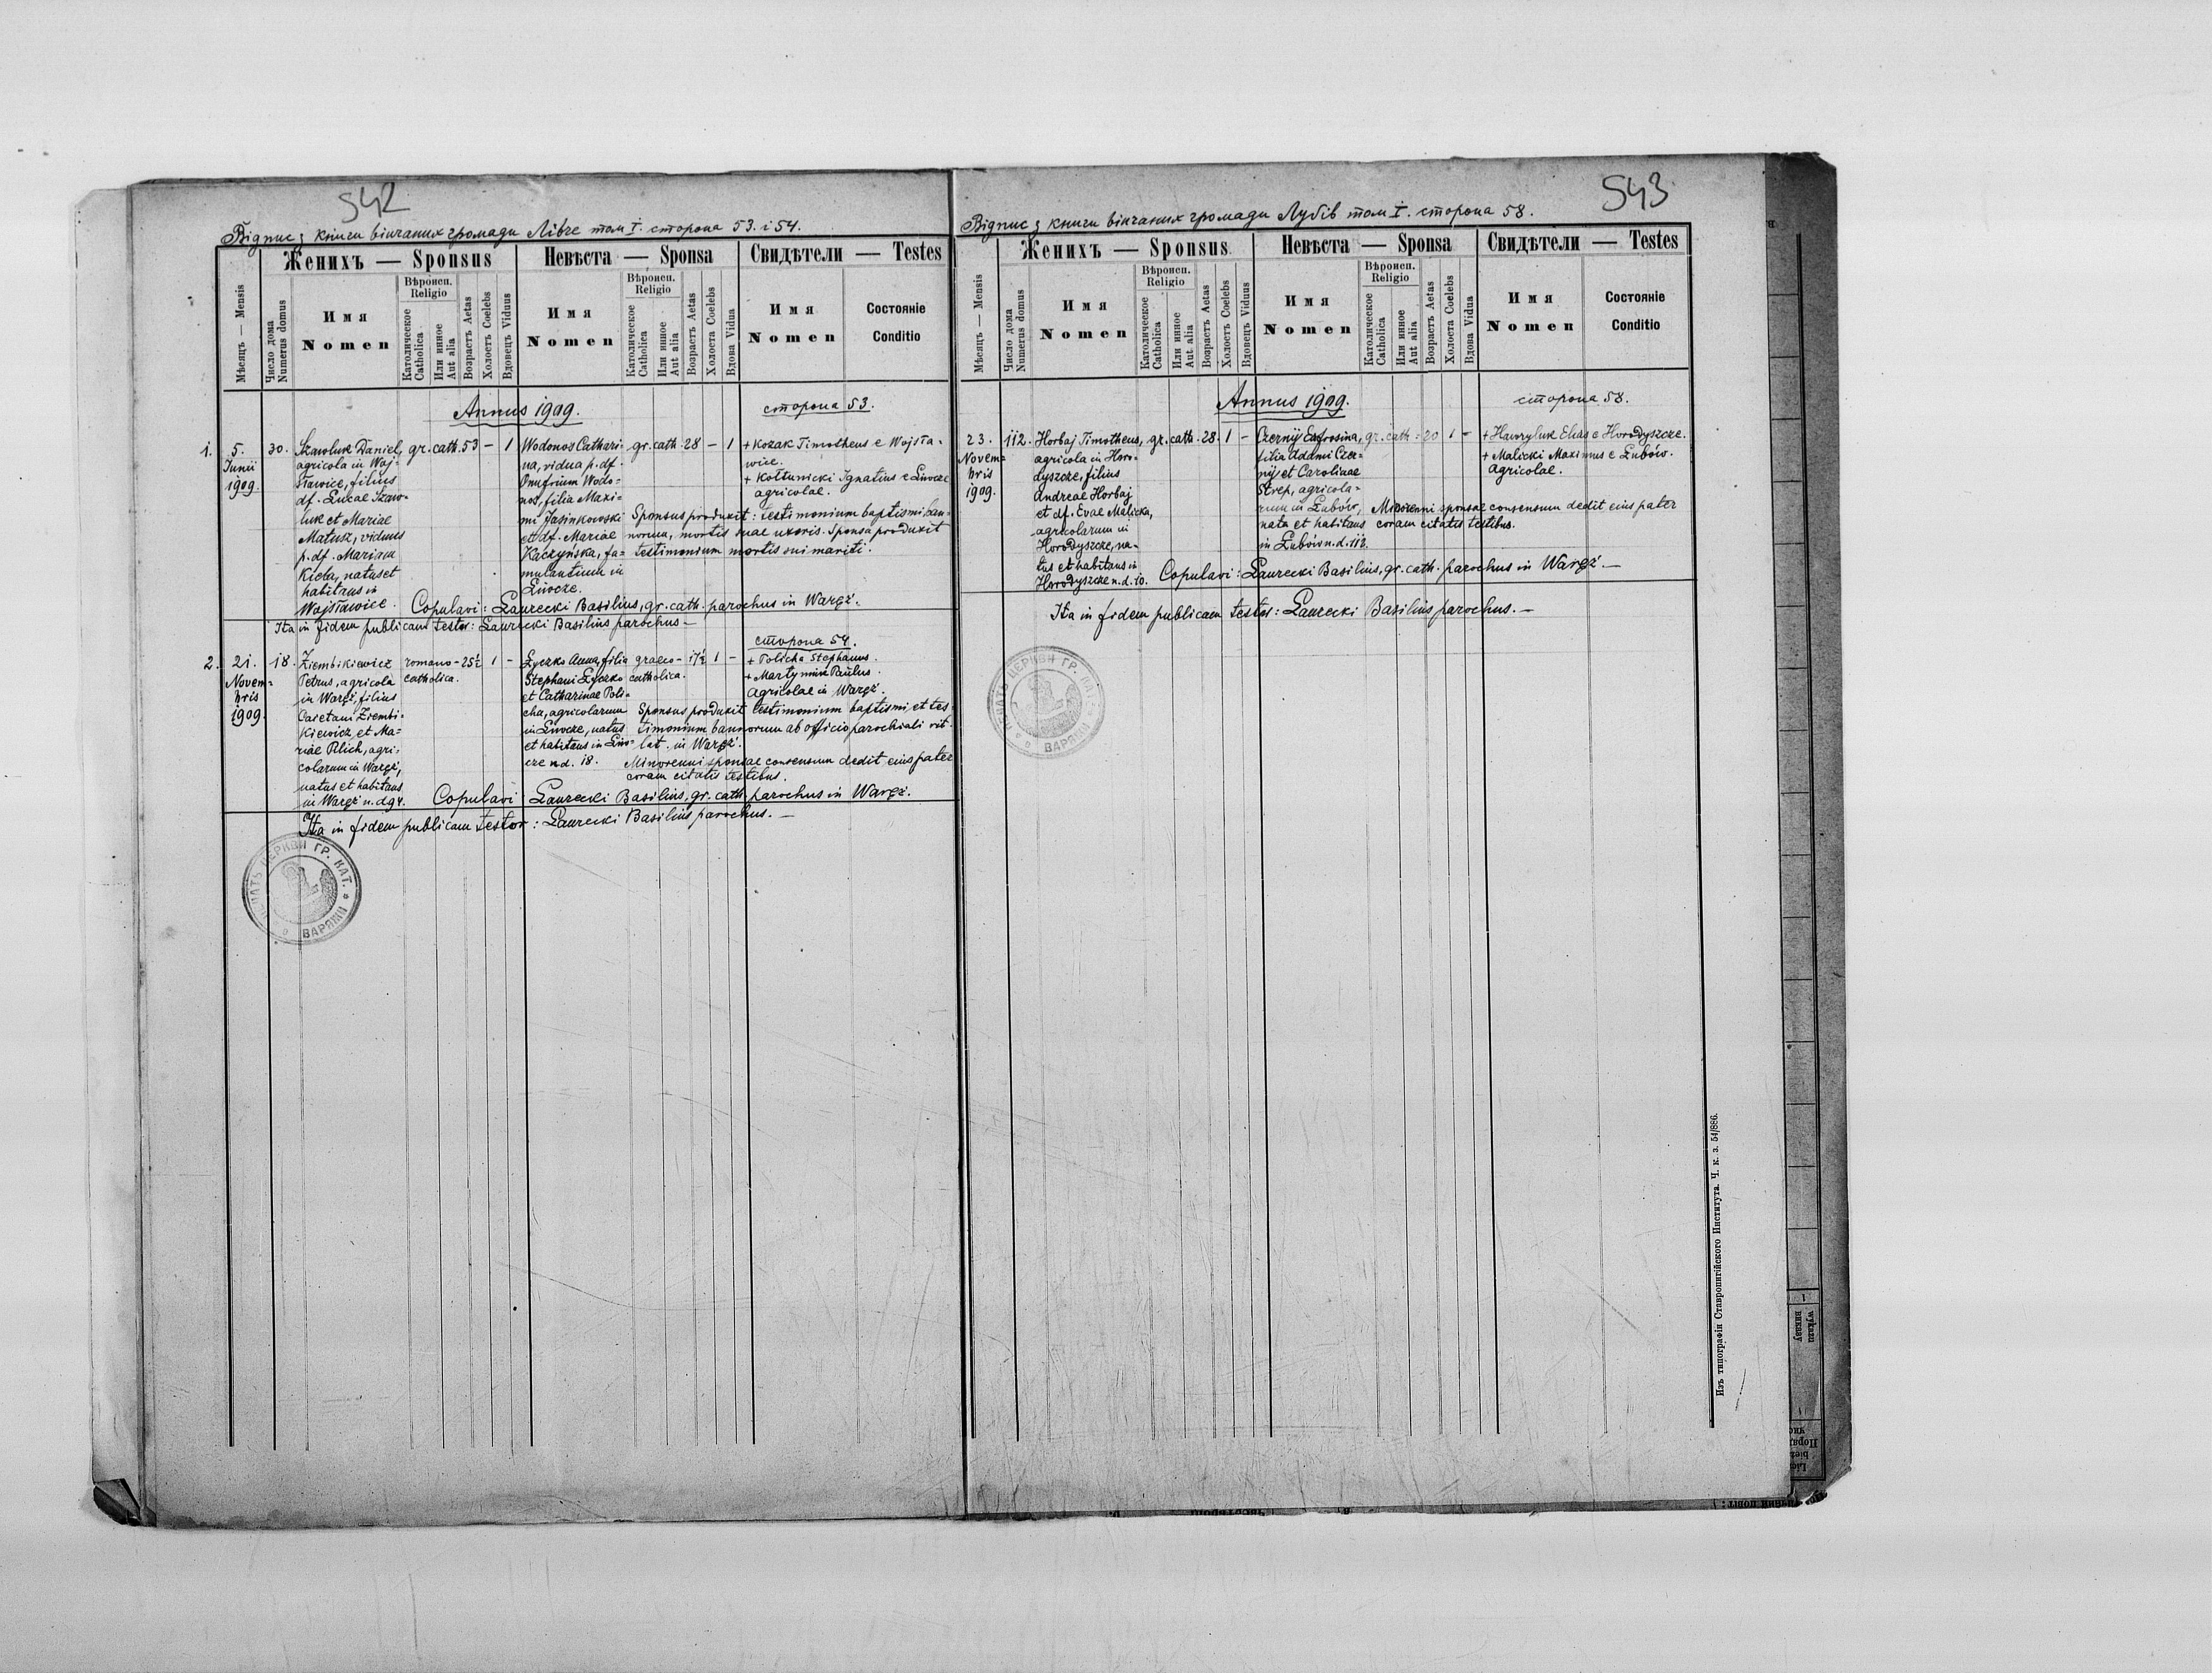 542
Відпис з книги вінчаних громади Лівче том I. сторона 53. і 54.
Женихъ — Sponsus
Невѣста — Sponsa
Свидѣтели — Testes
Мѣсяцъ — Mensis
Число дома
Numerus domus
Имя
Nomen
Вѣроисп.
Religio
Католическое
Catholica
Или инное
Aut alia
Возрастъ Aetas
Холостъ Coelebs
Вдовецъ Viduus
Имя
Nomen
Вѣроисп.
Religio
Католическое
Catholica
Или инное
Aut alia
Возрастъ Aetas
Холоста Coelebs
Вдова Vidua
Имя
Nomen
Состояніе
Conditio
Annus 1909.
сторона 53.
1.
5.
Junii
1909.
30.
Szawluk Daniel,
agricola in Woj-
sławice, filius
df. Lucae Szaw-
luk et Mariae
Matusz, viduus
p. df. Mariam
Kieta, natus et
habitans in
Wojsławice.
gr. cath. 53 — 1
Wodonos Cathari-
na, vidua p. df.
Onufrium Wodo-
nos, filia Maxi-
mi Jasinkowski
et df. Mariae
Kaczyńska, fa-
mulantium in
Liwcze.
gr. cath. 28 — 1
+ Kozak Timotheus e Wojsła-
wice.
+ Kołtunicki Ignatius e Liwcze
agricolae.
Sponsus produxit: testimonium baptismi, ban-
norum, mortis suae uxoris. Sponsa produxit
testimonium mortis sui mariti.
Copulavi: Ławrecki Basilius, gr. cath. parochus in Waręż.
Ita in fidem publicam testor: Ławrecki Basilius parochus —
сторона 54.
2.
21.
Novem-
bris
1909.
18.
Ziembikiewicz
Petrus, agricola
in Waręż, filius
Caietani Ziembi-
kiewicz et Ma-
riae Plich, agri-
colarum in Waręż,
natus et habitans
in Waręż n. d. 94.
romano-
catholica.
25½ 1 —
Łyczko Anna, filia
Stephani Łyczko
et Catharinae Poli-
cha, agricolarum
in Liwcze, natus
et habitans in Liw-
cze n. d. 18.
graeco-
catholica.
17½ 1 —
+ Policha Stephanus.
+ Martyniuk Paulus.
agricolae in Waręż.
Sponsus produxit testimonium baptismi et tes-
timonium bannorum ab officio parochiali rit.
lat. in Waręż.
Minorenni sponsae consensum dedit eius pater
coram citatis testibus.
Copulavi: Ławrecki Basilius, gr. cath. parochus in Waręż.
Ita in fidem publicam testor: Ławrecki Basilius parochus. —
ПЕЧАТЬ ЦЕРКВИ ГР. КАТ.
ВАРЯЖИ
543
Відпис з книги вінчаних громади Лубів том I. сторона 58.
Женихъ — Sponsus
Невѣста — Sponsa
Свидѣтели — Testes
Мѣсяцъ — Mensis
Число дома
Numerus domus
Имя
Nomen
Вѣроисп.
Religio
Католическое
Catholica
Или инное
Aut alia
Возрастъ Aetas
Холостъ Coelebs
Вдовецъ Viduus
Имя
Nomen
Вѣроисп.
Religio
Католическое
Catholica
Или инное
Aut alia
Возрастъ Aetas
Холоста Coelebs
Вдова Vidua
Имя
Nomen
Состояніе
Conditio
Annus 1909.
сторона 58.
23.
Novem-
bris
1909.
112.
Horbaj Timotheus,
agricola in Horo-
dyszcze, filius
Andreae Horbaj
et df. Evae Malicka,
agricolarum in
Horodyszcze, na-
tus et habitans in
Horodyszcze n. d. 10.
gr. cath. 28. 1 —
Czernij Eufrosina,
filia Adami Czer-
nij et Carolinae
Strep, agricola-
rum in Łubów,
nata et habitans
in Łubów n. d. 112.
gr. cath. 20 1 —
+ Hawryluk Elias e Horodyszcze.
+ Malicki Maximus e Łubów.
agricolae.
Minorenni sponsae consensum dedit eius pater
coram citatis testibus.
Copulavi: Ławrecki Basilius, gr. cath. parochus in Waręż. —
Ita in fidem publicam testor: Ławrecki Basilius parochus. —
ПЕЧАТЬ ЦЕРКВИ ГР. КАТ.
ВАРЯЖИ
Изъ типографіи Ставропигійского Института. Ч. к. з. 54/886.
1
wykazu
виказу